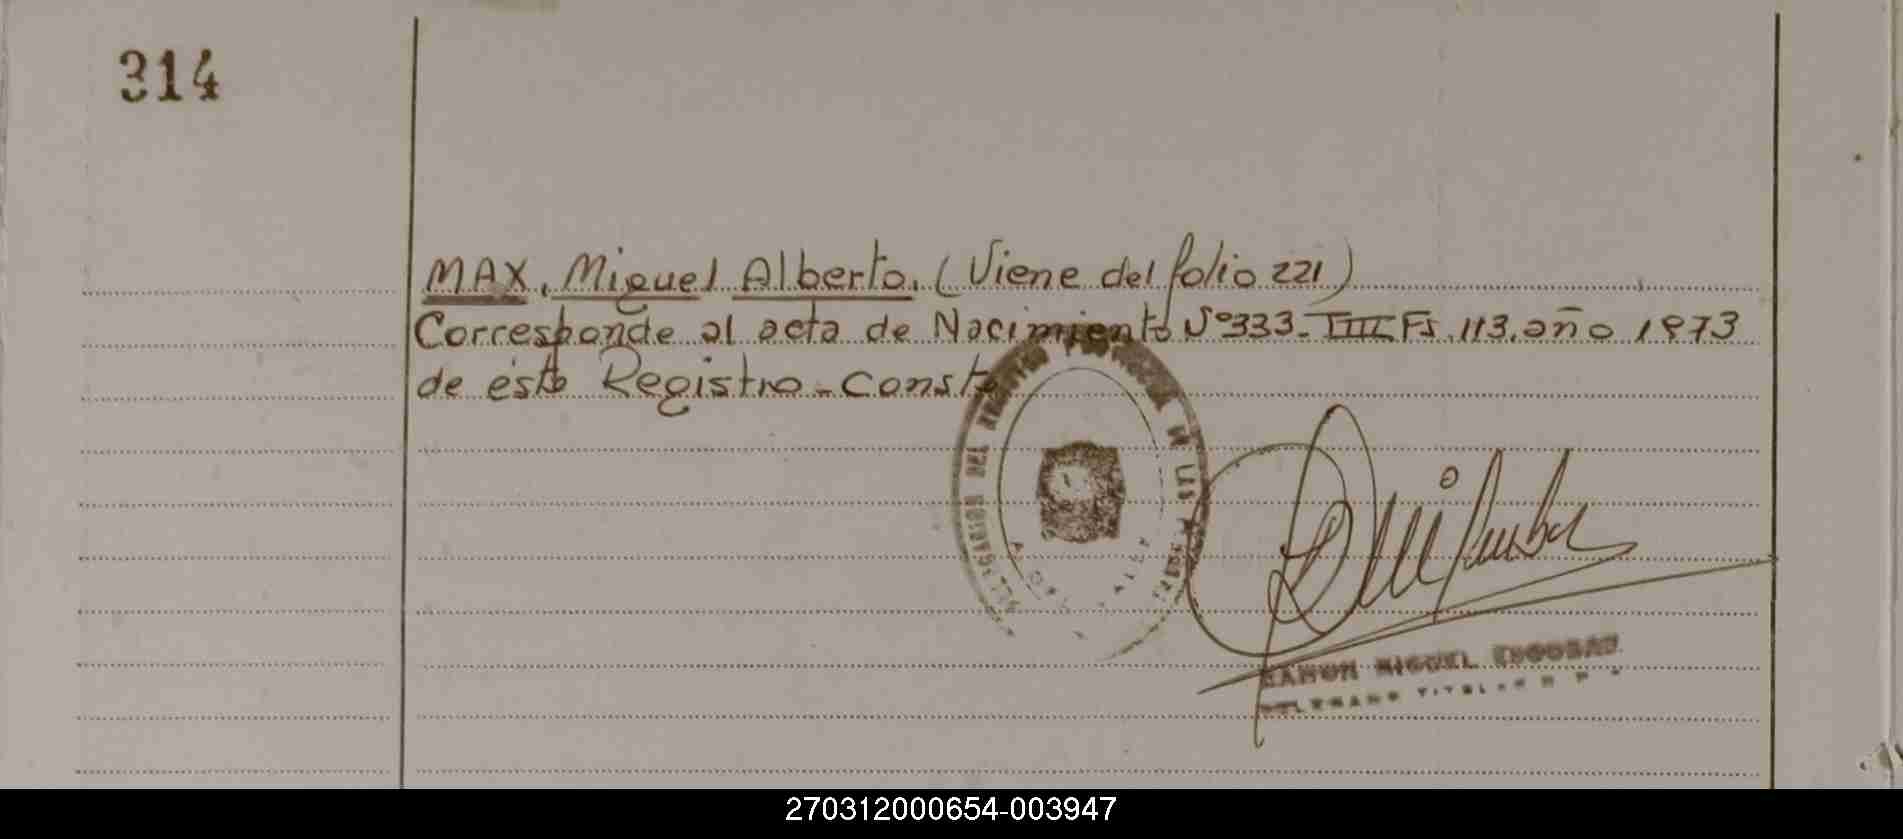 314
MAX, Miguel Alberto. (Viene del folio 221)
Corresponde al acta de Nacimiento Nº333-TIII Fs. 113. año 1973
de ésto Registro-Consta
DEL REGISTRO PROVINCIAL DE LAS
RAMON MIGUEL ESCOBAR
DELEGADO TITULAR
270312000654-003947